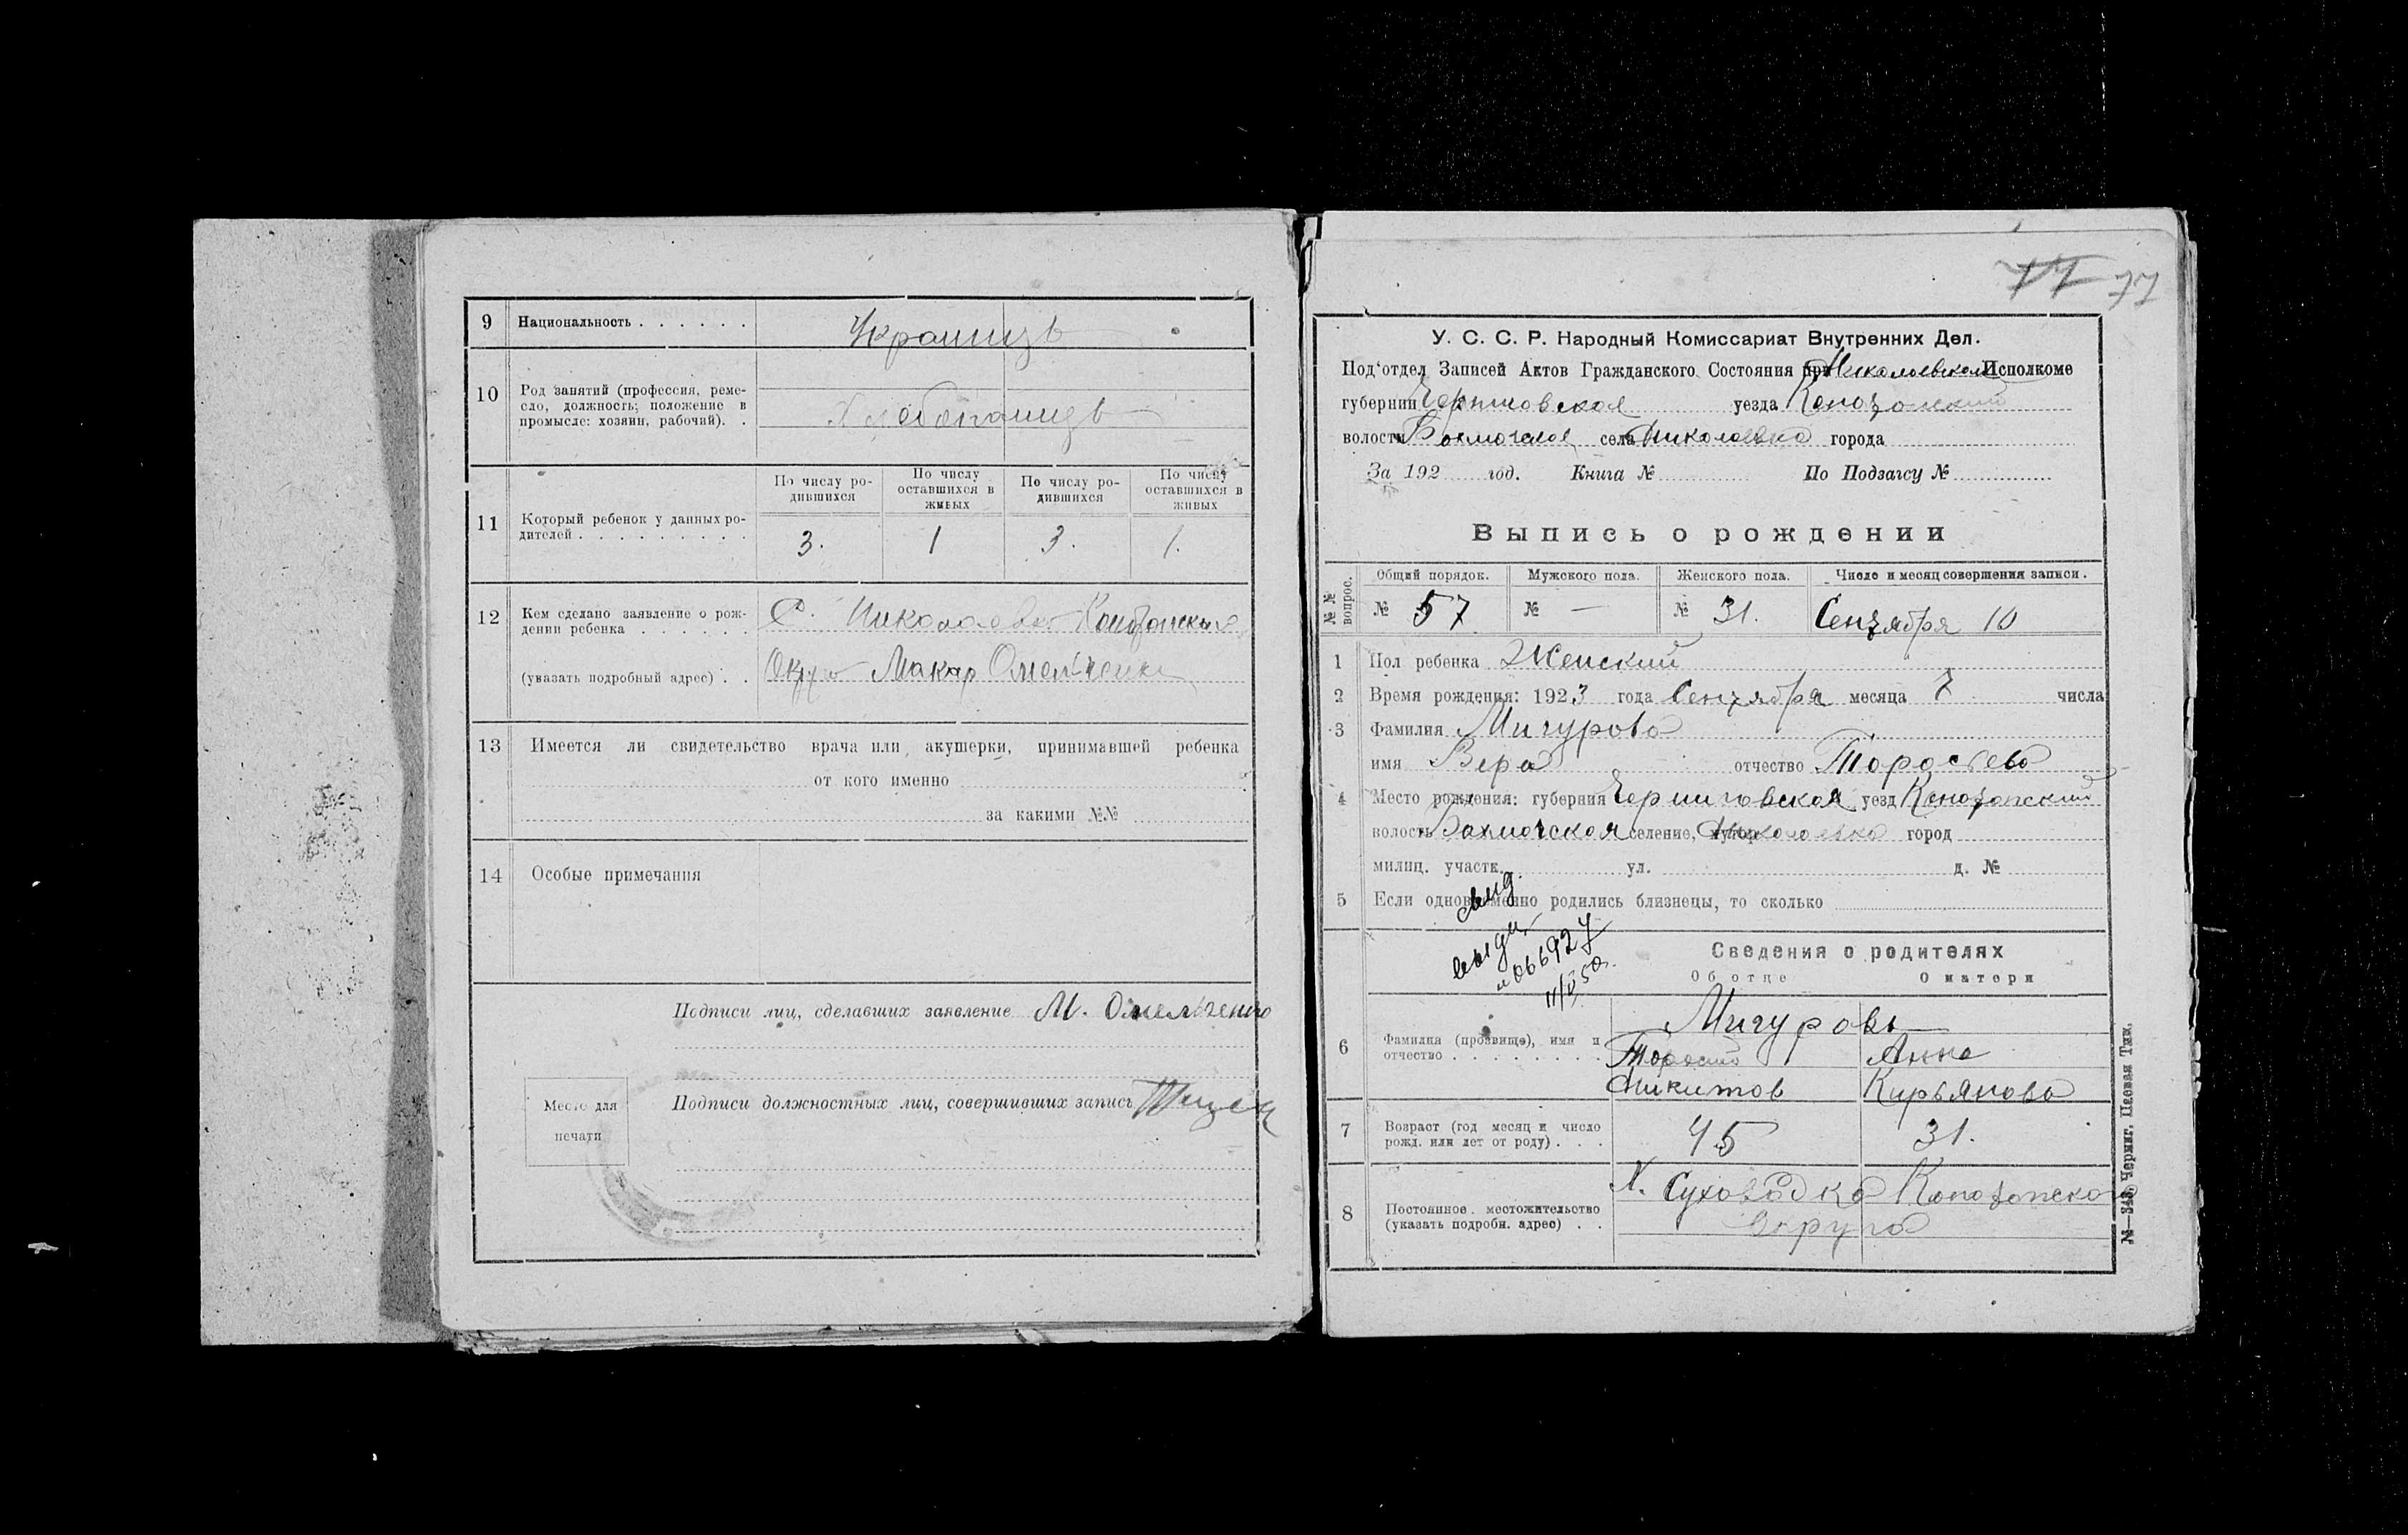 9 Национальность . . . . . . Украинцъ
10 Род занятий (профессия, реме-
сло, должность; положение в
промысле: хозяин, рабочий). . Хлебопашцъ
По числу ро-
дившихся
По числу
оставшихся в
живых
По числу ро-
дившихся
По числу
оставшихся в
живых
11 Который ребенок у данных ро-
дителей . . . . . . . . .
3. 1 3. 1.
12 Кем сделано заявление о рож-
дении ребенка . . . . . . С. Николаевка Конотопским
(указать подробный адрес) . . Макар Омельченко
13 Имеется ли свидетельство врача или, акушерки, принимавшей ребенка
от кого именно
за какими №№
14 Особые примечания
Подписи лиц, сделавших заявление М. Омельченко
Подписи должностных лиц, совершивших запись
Место для
печати
77 77
У. С. С. Р. Народный Комиссариат Внутренних Дел.
Под'отдел Записей Актов Гражданского Состояния при Николаевском Исполкоме
губернии Черниговская уезда Конотопский
волости Бахмачская села Николаевка города
За 192 год. Книга № По Подзагсу №
Выпись о рождении
№ № вопрос.
Общий порядок. Мужского пола. Женского пола. Число и месяц совершения записи.
№ 57 № — № 31. Сентября 10
1 Пол ребенка Женский
2 Время рождения: 1923 года Сентября месяца 7 числа
3 Фамилия Мигурова
имя Вера отчество Тарасьева
4 Место рождения: губерния Черниговская уезд Конотопский
волость Бахмачская селение, хутор Николаевка город
милиц. участк. ул. д. №
5 Если одновременно родились близнецы, то сколько
свид.
выдан
066924
Сведения о родителях
Об отце О матери
6 Фамилия (прозвище), имя и
отчество . . . . . . . .
Мигуровы
Тарасий Анна
Никитов Кирьянова
7 Возраст (год месяц и число
рожд. или лет от роду) . . .
45 31.
8 Постоянное местожительство
(указать подробн. адрес) . .
Х. Суховодка Конотопско
округа
№—343. Черниг. Цевая Тип.